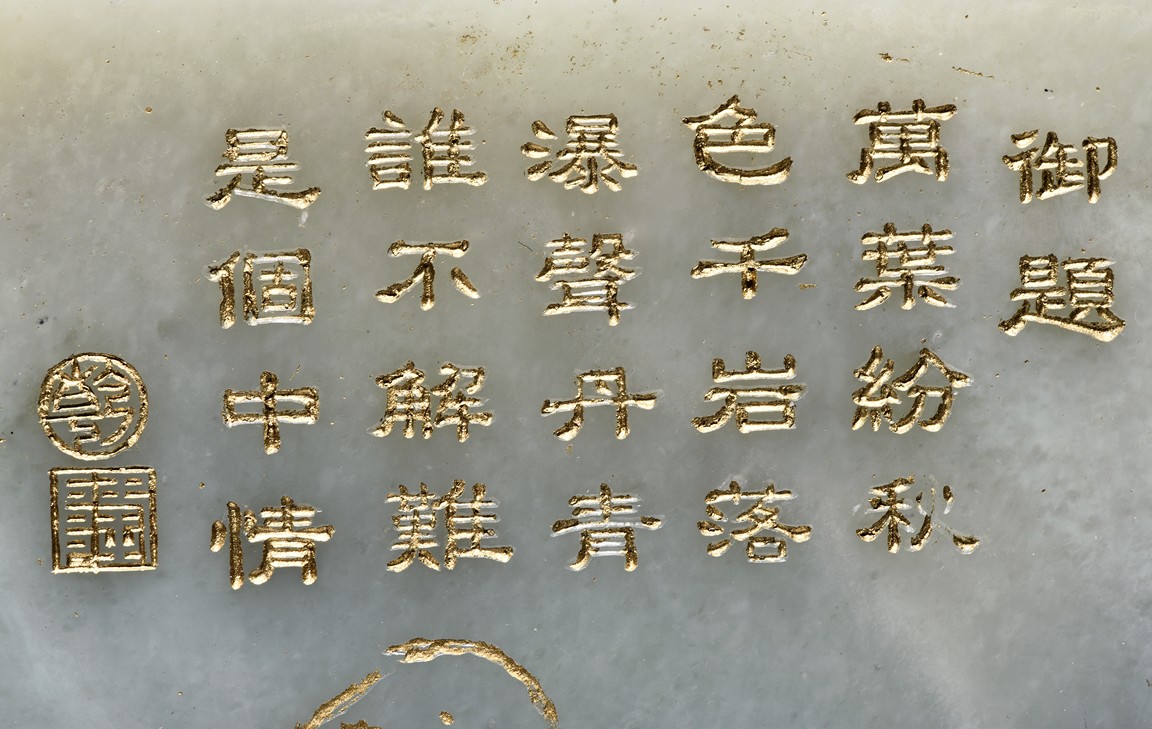 御題
萬葉紛秋
色千岩落
瀑聲丹青
誰不解難
是個中情